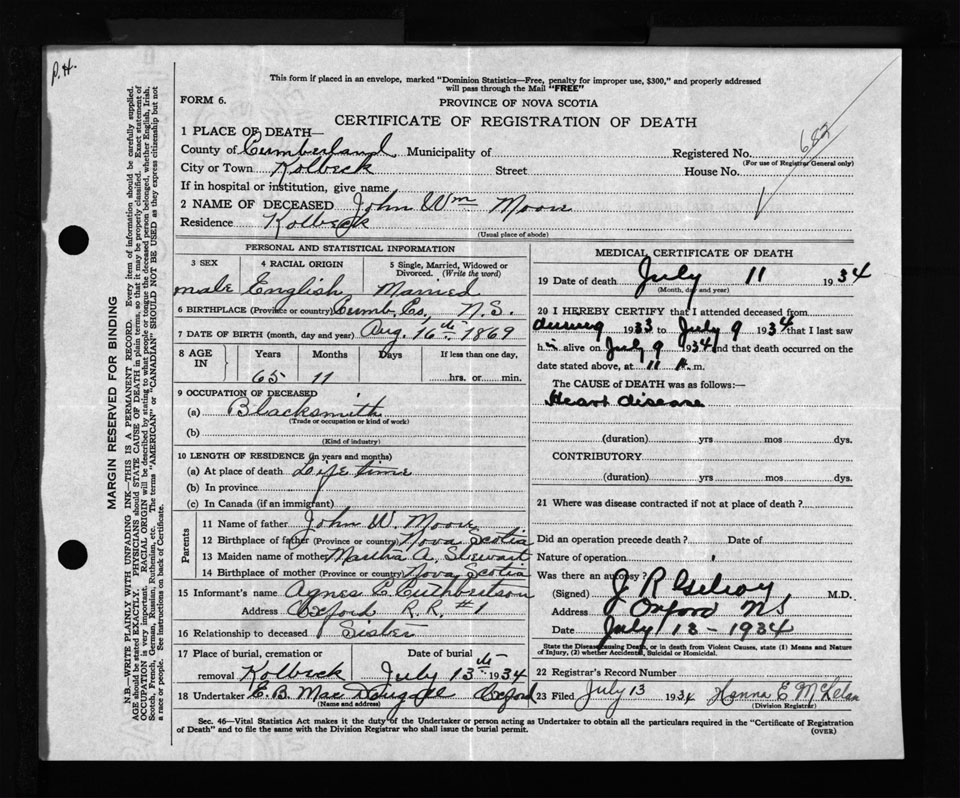 P.H.
This form if placed in an envelope, marked "Dominion Statistics—Free, penalty for improper use, $300," and properly addressed
will pass through the Mail "FREE"
FORM 6.
PROVINCE OF NOVA SCOTIA
CERTIFICATE OF REGISTRATION OF DEATH
682
1 PLACE OF DEATH—
County of Cumberland Municipality of Registered No.
(For use of Registrar General only)
City or Town Kolbeck Street House No.
If in hospital or institution, give name
2 NAME OF DECEASED John Wm Moore
Residence Kolbeck
(Usual place of abode)
PERSONAL AND STATISTICAL INFORMATION
3 SEX 4 RACIAL ORIGIN 5 Single, Married, Widowed or Divorced. (Write the word)
male English Married
6 BIRTHPLACE (Province or country) Cumb. Co., N.S.
7 DATE OF BIRTH (month, day and year) Aug. 16th 1869
8 AGE IN Years Months Days If less than one day,
65 11 hrs. or min.
9 OCCUPATION OF DECEASED
(a) Blacksmith
(Trade or occupation or kind of work)
(b)
(Kind of industry)
10 LENGTH OF RESIDENCE (in years and months)
(a) At place of death Life time
(b) In province
(c) In Canada (if an immigrant)
Parents
11 Name of father John W. Moore
12 Birthplace of father (Province or country) Nova Scotia
13 Maiden name of mother Martha A. Stewart
14 Birthplace of mother (Province or country) Nova Scotia
15 Informant's name Agnes C. Cuthbertson
Address Oxford R.R. #1
16 Relationship to deceased Sister
17 Place of burial, cremation or removal Date of burial
Kolbeck July 13th 1934
18 Undertaker E. B. MacDougall Oxford
(Name and address)
MEDICAL CERTIFICATE OF DEATH
19 Date of death July 11 1934
(Month, day and year)
20 I HEREBY CERTIFY that I attended deceased from
during 1933 to July 9 1934 that I last saw
him alive on July 9 1934 and that death occurred on the
date stated above, at 11 m.
The CAUSE OF DEATH was as follows:—
Heart disease
(duration) yrs mos dys.
CONTRIBUTORY
(duration) yrs mos dys.
21 Where was disease contracted if not at place of death?
Did an operation precede death? Date of
Nature of operation
Was there an autopsy?
(Signed) J R Gilroy M.D.
Address Oxford NS
Date July 13 - 1934
State the Disease causing Death, or in death from Violent Causes, state (1) Means and Nature
of Injury, (2) whether Accidental, Suicidal or Homicidal.
22 Registrar's Record Number
23 Filed July 13 1934 Hanna E
(Division Registrar)
Sec. 46—Vital Statistics Act makes it the duty of the Undertaker or person acting as Undertaker to obtain all the particulars required in the "Certificate of Registration
of Death" and to file the same with the Division Registrar who shall issue the burial permit.
(OVER)
MARGIN RESERVED FOR BINDING
N.B.—WRITE PLAINLY WITH UNFADING INK—THIS IS A PERMANENT RECORD. Every item of information should be carefully supplied.
AGE should be stated EXACTLY. PHYSICIANS should STATE CAUSE OF DEATH in plain terms, so that it may be properly classified. Exact statement of
OCCUPATION is very important. RACIAL ORIGIN will be described by stating to what people or tongue the deceased person belonged, whether English, Irish,
Scotch, French, German, Russian, Ruthenian, etc. The terms "AMERICAN" or "CANADIAN" SHOULD NOT BE USED as they express citizenship but not
a race or people. See instructions on back of Certificate.